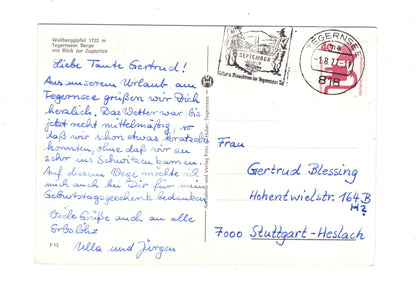 Wallberggipfel 1722 m
Tegernseer Berge
mit Blick zur Zugspitze
Liebe Tante Gertrud!
Aus unserem Urlaub am
Tegernsee grüßen wir Dich
herzlich. Das Wetter war bis
jetzt recht mittelmäßig, so
daß wir schon etwas kraxeln
konnten, ohne daß wir zu
sehr ins Schwitzen kamen.
Auf diesem Wege möchte ich
mich auch bei Dir für mein
Geburtstagsgeschenk bedanken.
Viele Grüße auch an alle
Ulla und Jürgen
F 13
SEPTEMBER
TEGERNSEE
818
Frau
Gertrud Blessing
Hohentwielstr. 164B
7000 Stuttgart-Heslach